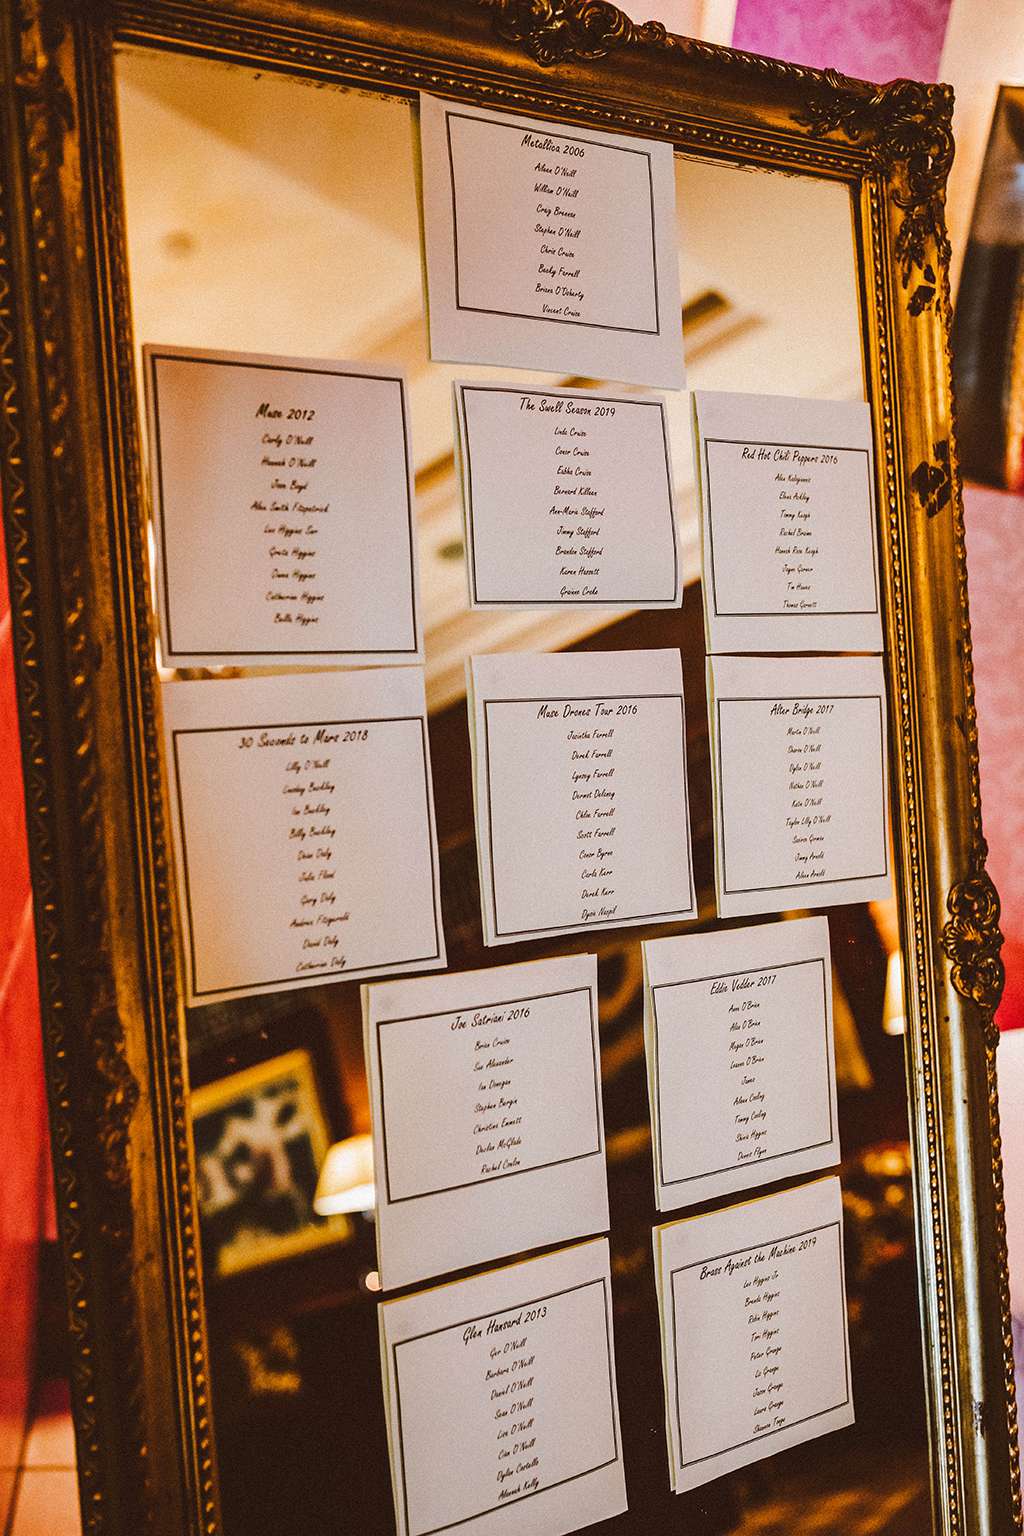 Metallica 2006
Aileen O'Neill
William O'Neill
Craig Brennan
Stephen O'Neill
Chris Cruise
Becky Farrell
Briana O'Doherty
Vincent Cruise
Muse 2012
Carly O'Neill
Hannah O'Neill
Jean Boyd
Alan Smith Fitzpatrick
Luc Higgins Snr
Greta Higgins
Oonna Higgins
Catherine Higgins
Bella Higgins
The Swell Season 2019
Linda Cruise
Conor Cruise
Eabha Cruise
Bernard Killeen
Ann-Marie Stafford
Jimmy Stafford
Brandon Stafford
Karen Hassett
Grainne Creke
Red Hot Chili Peppers 2016
Alex
Elena Ackley
Tommy Keogh
Rachel Browne
Hannah Rose Keogh
Joyce
Tia Hawes
Thomas Garnett
30 Seconds to Mars 2018
Lilly O'Neill
Lindsay Buckley
Ian Buckley
Billy Buckley
Dean Daly
Julie Flood
Gary Daly
Andrew Fitzgerald
David Daly
Catherine Daly
Muse Drones Tour 2016
Jacintha Farrell
Derek Farrell
Lynsey Farrell
Dermot Delaney
Chloe Farrell
Scott Farrell
Conor Byrne
Carla Kerr
Derek Kerr
Dyon Naspil
Alter Bridge 2017
Martin O'Neill
Sharon O'Neill
Dylan O'Neill
Nathan O'Neill
Katie O'Neill
Taylor Lilly O'Neill
Saoirse Gorman
Jimmy Arnold
Aileen Arnold
Joe Satriani 2016
Brian Cruise
Sue Alexander
Ian Donegan
Stephen Bergin
Christine Emmett
Declan McGlade
Rachel Conlon
Eddie Vedder 2017
Anne O'Brien
Alan O'Brien
Megan O'Brien
Leanne O'Brien
James
Aileen Cooling
Tommy Cooling
Shiela Higgins
Denis Flynn
Glen Hansard 2013
Ger O'Neill
Barbara O'Neill
Daniel O'Neill
Sean O'Neill
Lisa O'Neill
Cian O'Neill
Dylan Costello
Aleannah Kelly
Brass Against the Machine 2019
Luc Higgins Jr
Brenda Higgins
Robin Higgins
Tori Higgins
Peter Grange
Liz Grange
Jason Grange
Laura Grange
Shannon Tonge